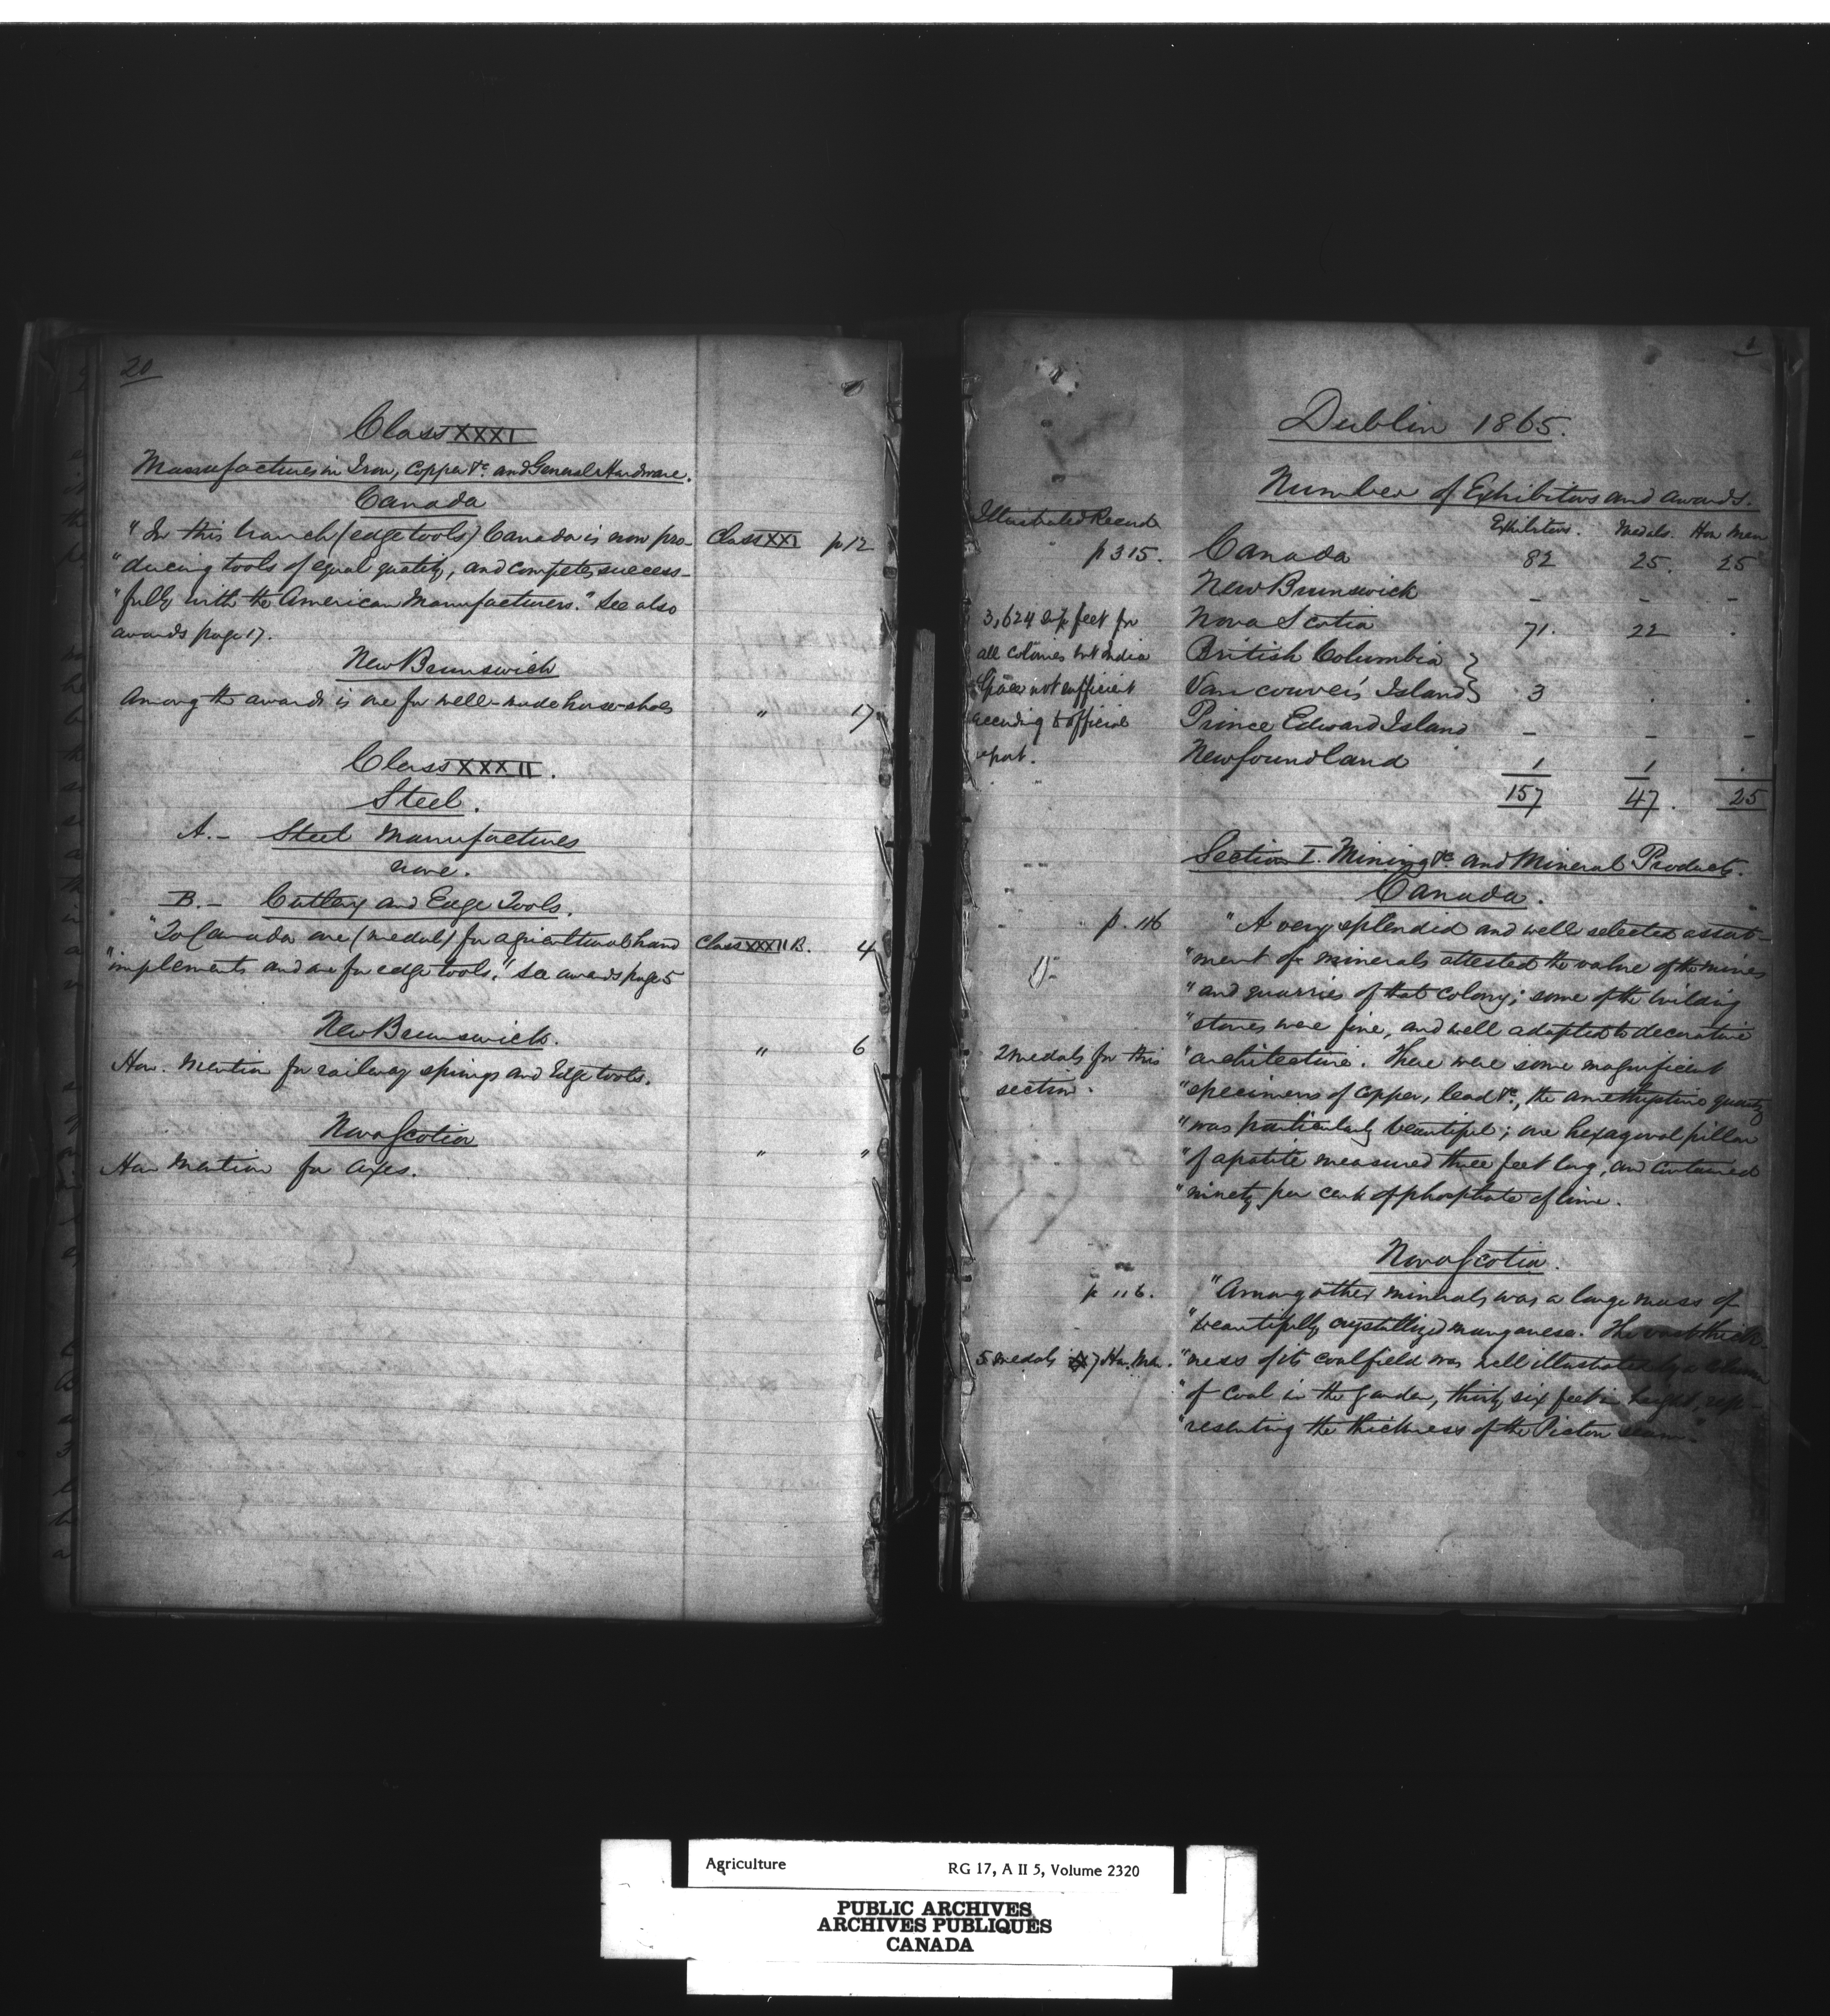 20
Class XXXI
Manufactures in Iron, Copper &c. and General Hardware.
Canada
"In this branch (edge tools) Canada is now pro- Class XXXI p 12
"ducing tools of equal quality, and competes success-
"fully with the American Manufacturers." See also
awards page 17.
New Brunswick
Among the awards is one for well-made horse-shoes " 17
Class XXXII.
Steel.
A.- Steel Manufactures
none.
B.- Cutlery and Edge Tools.
"To Canada one (medal) for agricultural hand Class XXXII B. 4
"implements and one for edge tools." See awards page 5
New Brunswick.
Hon. Mention for railway springs and Edge tools. " 6
Nova Scotia
Hon Mention for Axes. " "
1
Dublin 1865.
Number of Exhibitors and awards.
Illustrated Record Exhibitors. Medals. Hon Men
p 315. Canada 82 25. 25
New Brunswick - - -
3,624 sup. feet for Nova Scotia 71. 22 .
all colonies but India British Columbia }
Space not sufficient Vancouver's Island } 3 . .
according to official Prince Edward Island - - -
report. Newfoundland 1 1 .
157 47. 25
Section I. Mining &c. and Mineral Products.
Canada.
p. 116 "A very splendid and well selected assort-
"ment of minerals attested the value of the mines
"and quarries of that colony; some of the building
"stones were fine, and well adapted to decorative
2 medals for this "architecture. There were some magnificent
section. "specimens of copper, lead &c., the amethystine quartz
"was particularly beautiful; one hexagonal pillar
"of apatite measured three feet long, and contained
"ninety per cent of phosphate of lime.
Nova Scotia.
p 116. "Among other minerals was a large mass of
"beautifully crystallized manganese. The vast thick-
5 medals 7 Hon. Men. "ness of its coalfield was well illustrated by a column
"of coal in the garden, thirty six feet in height, rep-
"resenting the thickness of the Pictou seam."
Agriculture RG 17, A II 5, Volume 2320
PUBLIC ARCHIVES
ARCHIVES PUBLIQUES
CANADA